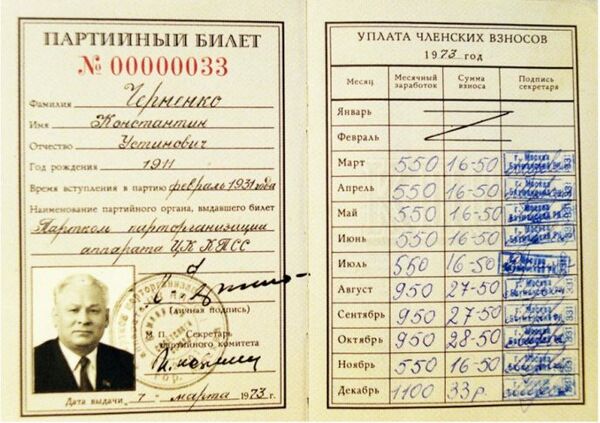 ПАРТИЙНЫЙ БИЛЕТ
№ 00000033
Фамилия Черненко
Имя Константин
Отчество Устинович
Год рождения 1911
Время вступления в партию февраль 1931 года
Наименование партийного органа, выдавшего билет
Партком парторганизации
аппарата ЦК КПСС
(личная подпись)
М. П. Секретарь
партийного комитета
Дата выдачи 7 - марта 1973 г.
УПЛАТА ЧЛЕНСКИХ ВЗНОСОВ
1973 год
Месяц Месячный заработок Сумма взноса Подпись секретаря
Январь
Февраль
Март 550 16-50 г. Москва
Апрель 550 16-50 г. Москва
Май 550 16-50 г. Москва
Июнь 550 16-50 г. Москва
Июль 550 16-50 г. Москва
Август 950 27-50 г. Москва
Сентябрь 950 27-50 г. Москва
Октябрь 950 28-50 г. Москва
Ноябрь 550 16-50 г. Москва
Декабрь 1100 33р. г. Москва